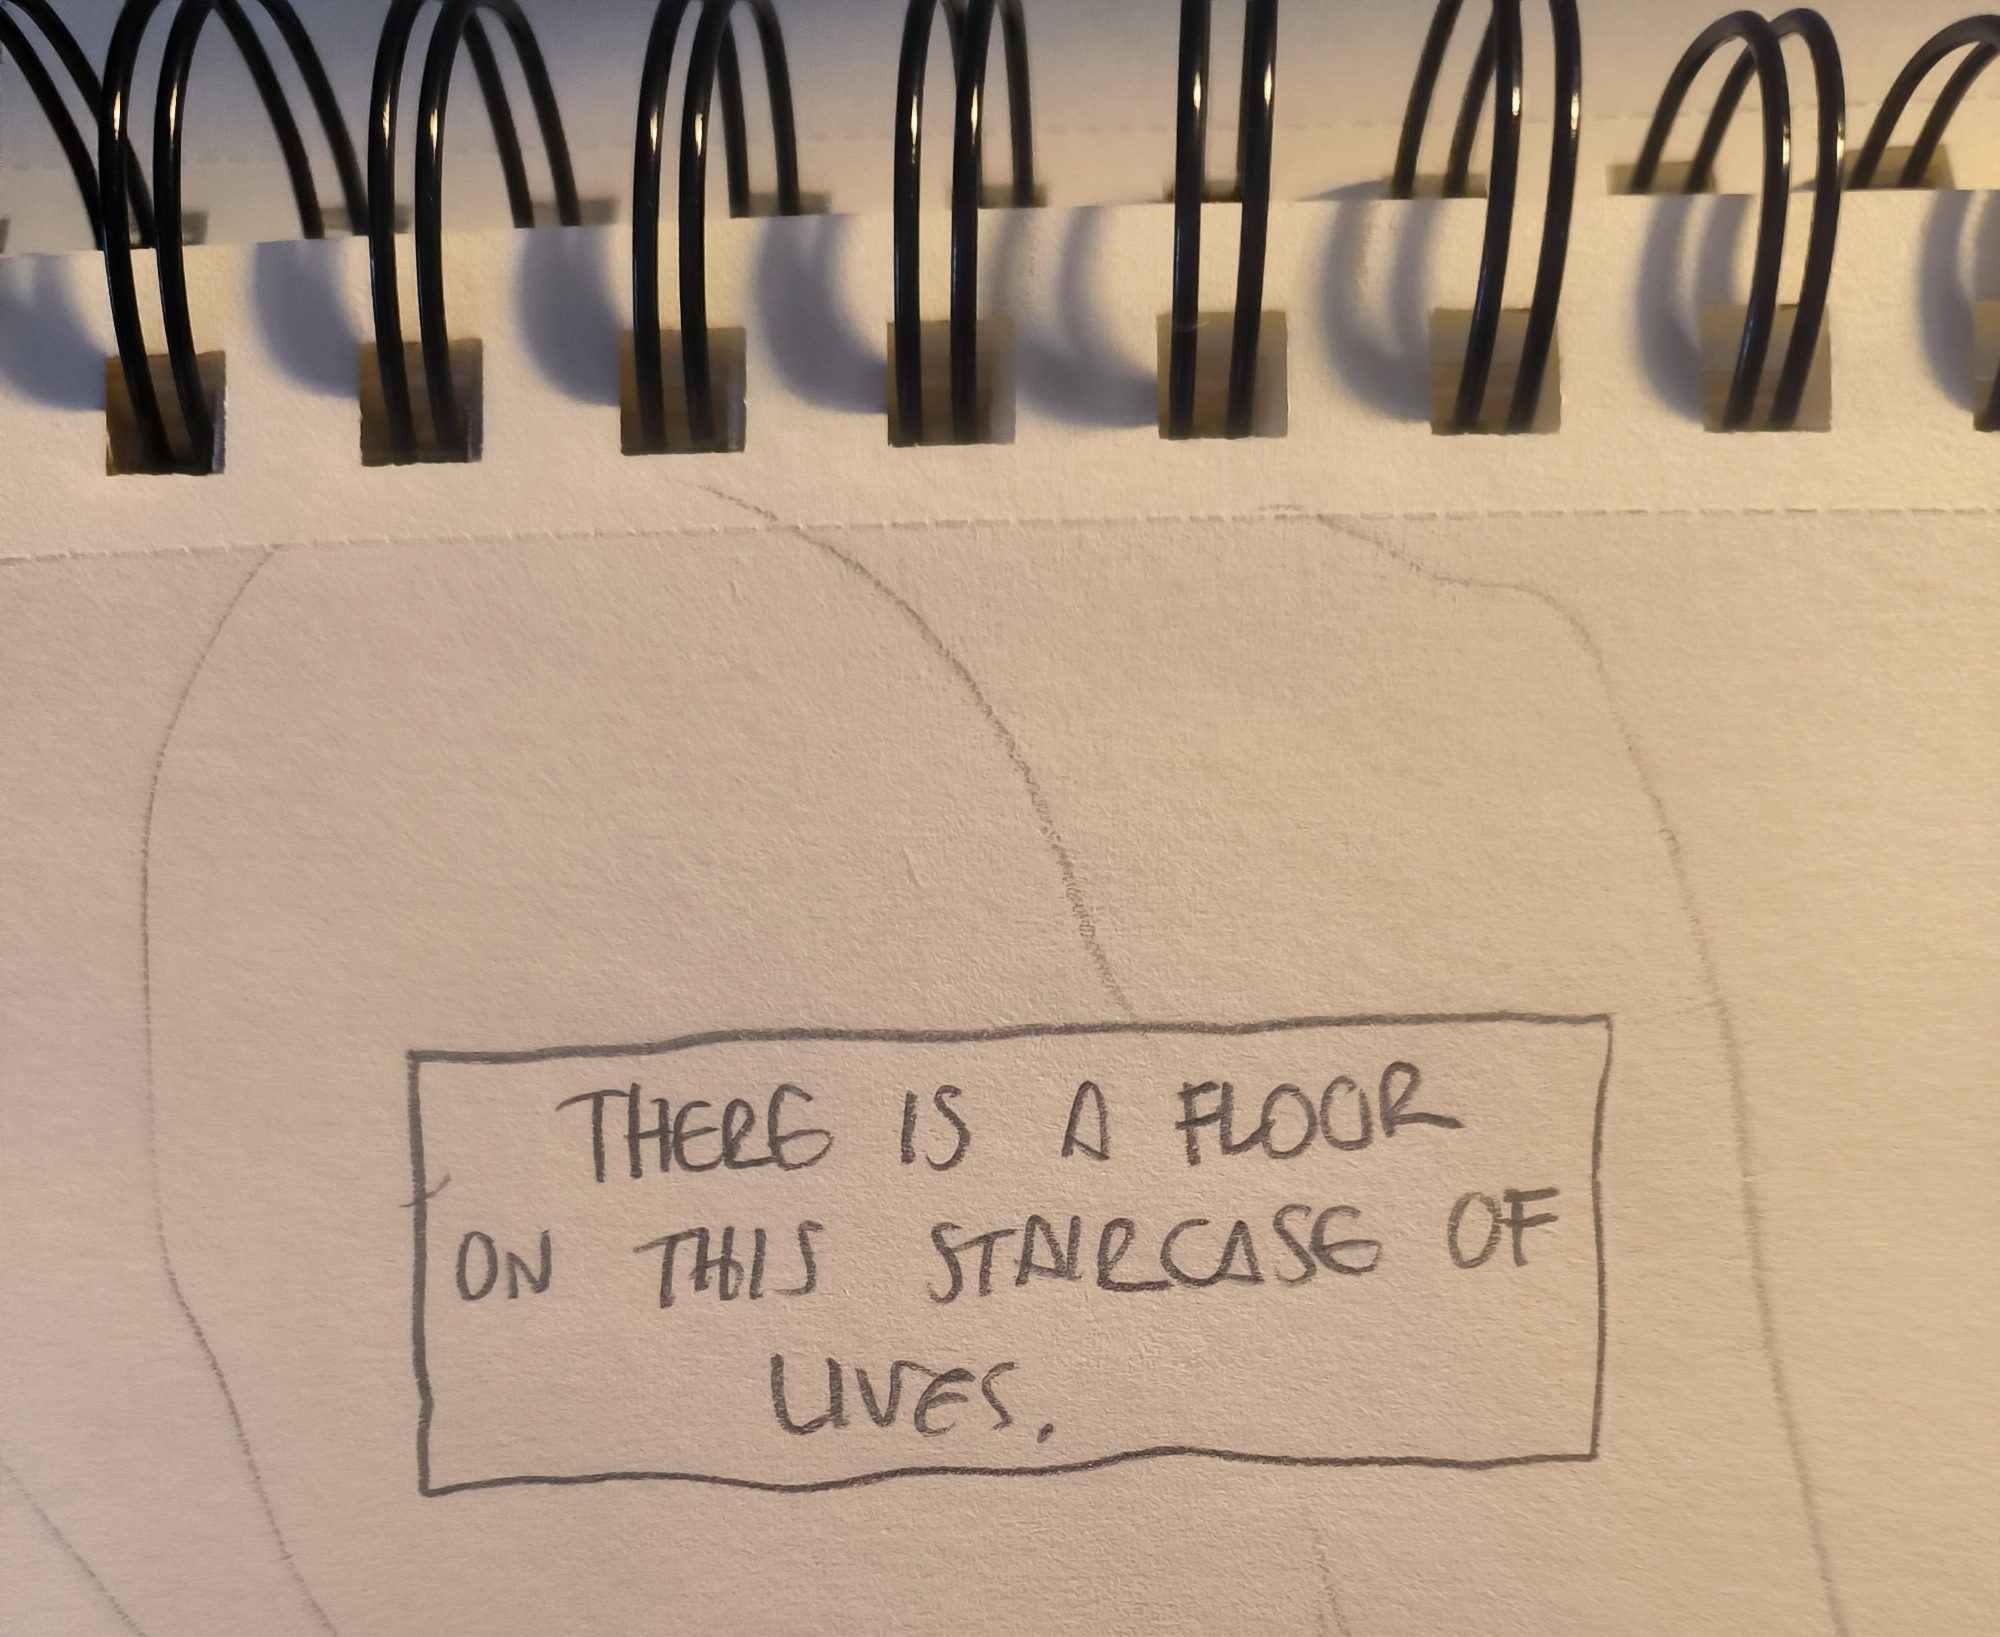 THERE IS A FLOOR
ON THIS STAIRCASE OF
LIVES.